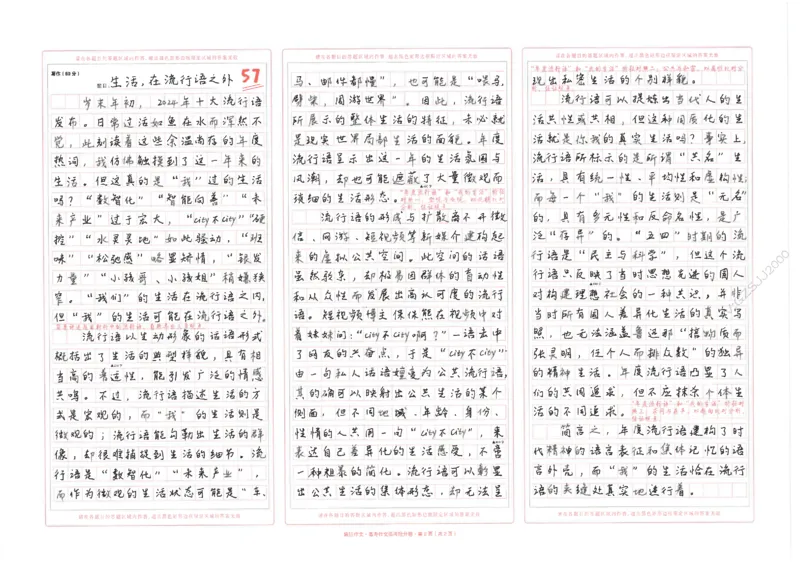 写作（60分）
题目：生活，在流行语之外
57
岁末年初，2024年十大流行语
发布。日常过活如鱼在水而浑然不
觉，此刻读着这些余温尚存的年度
热词，我仿佛触摸到了这一年来的
生活。但这真的是“我”过的生活
吗？“数智化”“智能向善”“未
来产业”过于宏大，“city不city”“硬
控”“水灵灵地”如此骚动，“班
味”“松弛感”略显矫情，“银发
力量”“小孩哥、小孩姐”稍嫌狭
窄。“我们”的生活在流行语之内，
但“我”的生活可能在流行语之外。
流行语以生动形象的话语形式
概括出了生活的典型样貌，具有相
当高的普适性，能引发广泛的情感
共鸣。不过，流行语描述生活的方
式是宏观的，而“我”的生活则是
微观的；流行语能勾勒出生活的群
像，却很难捕捉到生活的细节。流
行语是“数智化”“未来产业”，
而作为微观的生活状态可能是“车、
马、邮件都慢”，也可能是“喂马、
劈柴，周游世界”。因此，流行语
所展示的整体生活的特征，未必就
是现实世界局部生活的面貌。年度
流行语显示出这一年的生活氛围与
风潮，却也可能遮蔽了大量微观而
琐细的生活形态。
流行语的形成与扩散离不开微
信、网游、短视频等新媒介建构起
来的虚拟公共空间。此空间的话语
虽然驳杂，却极易因群体的盲动性
和从众性而发展出高认可度的流行
语。短视频博主保保熊在视频中对
着妹妹问：“city不city啊？”一语击中
了网友的兴奋点，于是“city不city”
由一句私人话语嬗变为公共流行语，
其的确可以映射出公共生活的某个
侧面，但不同地域、年龄、身份、
性情的人共用一句“city不city”，来
表达自己差异化的生活感受，不啻
一种粗暴的简化。流行语可以彰显
出公共生活的集体形态，却无法呈
现出私密生活的个别样貌。
流行语可以提炼出当代人的生
活共性或共相，但这种同质化的生
活就是你我的真实生活吗？事实上，
流行语所标示的是所谓“共名”生
活，具有统一性、平均性和虚构性；
而每一个“我”的生活则是“无名”
的，具有多元性和反命名性，是广
泛“存异”的。“五四”时期的流
行语是“民主与科学”，但这个流
行语只反映了当时思想先进的国人
对构建理想社会的一种共识，并非
当时所有国人差异化生活的真实写
照，也无法涵盖鲁迅那“掊物质而
张灵明，任个人而排众数”的独异
的精神生活。年度流行语凸显了人
们的共同追求，但不应抹杀个体生
活的不同追求。
简言之，年度流行语建构了时
代精神的语言表征和集体记忆的语
言外壳，而“我”的生活恰在流行
语的夹缝处真实地进行着。